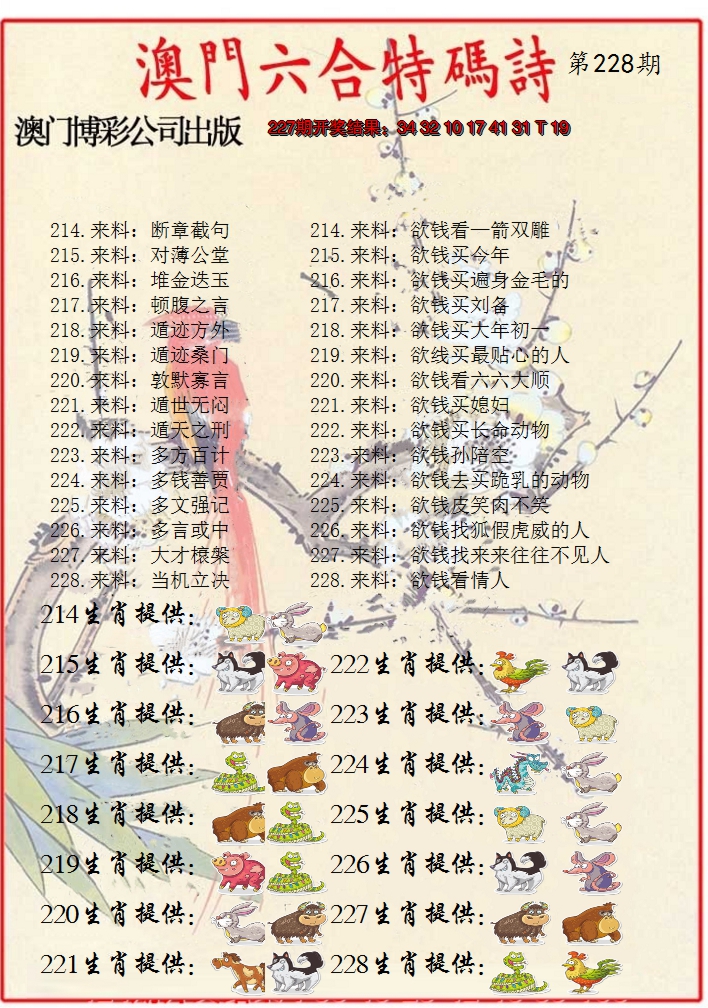 澳門六合特碼詩 第228期
澳门博彩公司出版 227期开奖结果：34 32 10 17 41 31 T 19
214.来料：断章截句 214.来料：欲钱看一箭双雕
215.来料：对薄公堂 215.来料：欲钱买今年
216.来料：堆金迭玉 216.来料：欲钱买遍身金毛的
217.来料：顿腹之言 217.来料：欲钱买刘备
218.来料：遁迹方外 218.来料：欲钱买大年初一
219.来料：遁迹桑门 219.来料：欲线买最贴心的人
220.来料：敦默寡言 220.来料：欲钱看六六大顺
221.来料：遁世无闷 221.来料：欲钱买媳妇
222.来料：遁天之刑 222.来料：欲钱买长命动物
223.来料：多方百计 223.来料：欲钱孙陪空
224.来料：多钱善贾 224.来料：欲钱去买跪乳的动物
225.来料：多文强记 225.来料：欲钱皮笑肉不笑
226.来料：多言或中 226.来料：欲钱找狐假虎威的人
227.来料：大才槺槃 227.来料：欲钱找来来往往不见人
228.来料：当机立决 228.来料：欲钱看情人
214生肖提供：
215生肖提供： 222生肖提供：
216生肖提供： 223生肖提供：
217生肖提供： 224生肖提供：
218生肖提供： 225生肖提供：
219生肖提供： 226生肖提供：
220生肖提供： 227生肖提供：
221生肖提供： 228生肖提供：